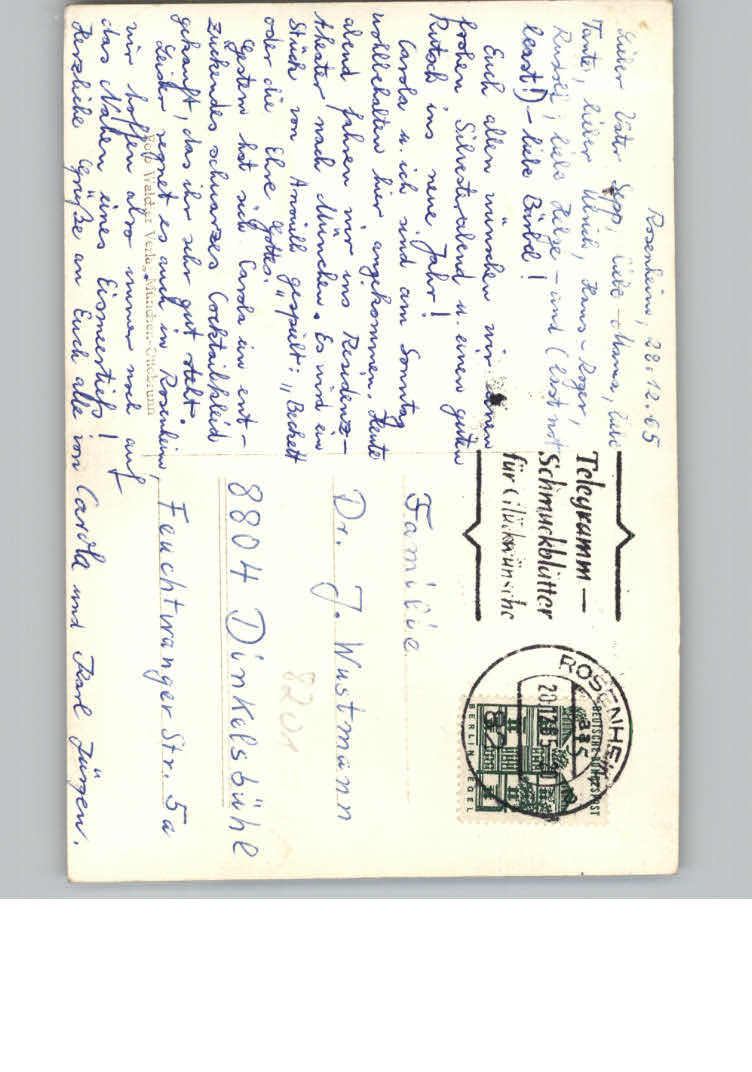 Rosenheim, 28.12.65
Lieber Vater Sepp, liebe Mama, liebe
Tante, lieber Ulrich, Hans-Roger,
Rudolf, liebe Helge - und (last not
least!) - liebe Bärbel!
Euch allen wünschen wir einen
frohen Silvesterabend u. einen guten
Rutsch ins neue Jahr!
Carola u. ich sind am Sonntag
wohlbehalten hier angekommen. Heute
abend fahren wir ins Residenz-
theater nach München. Es wird ein
Stück von Anouilh gespielt: „Beckett
oder die Ehre Gottes."
Gestern hat sich Carola ein ent-
zückendes schwarzes Cocktailkleid
gekauft, das ihr sehr gut steht.
Leider regnet es auch in Rosenheim,
wir hoffen also immer noch auf
das Nahen eines Eismeertiefs!
Herzliche Grüße an Euch alle von Carola und Karl Jürgen.
Foto Walcher Verlag, München-Ottobrunn
Telegramm-
Schmuckblätter
für Glückwünsche
ROSENHEIM
DEUTSCHE BUNDESPOST
BERLIN TEGEL
Familie
Dr. J. Wustmann
8201
8804 Dinkelsbühl
Feuchtwanger Str. 5a